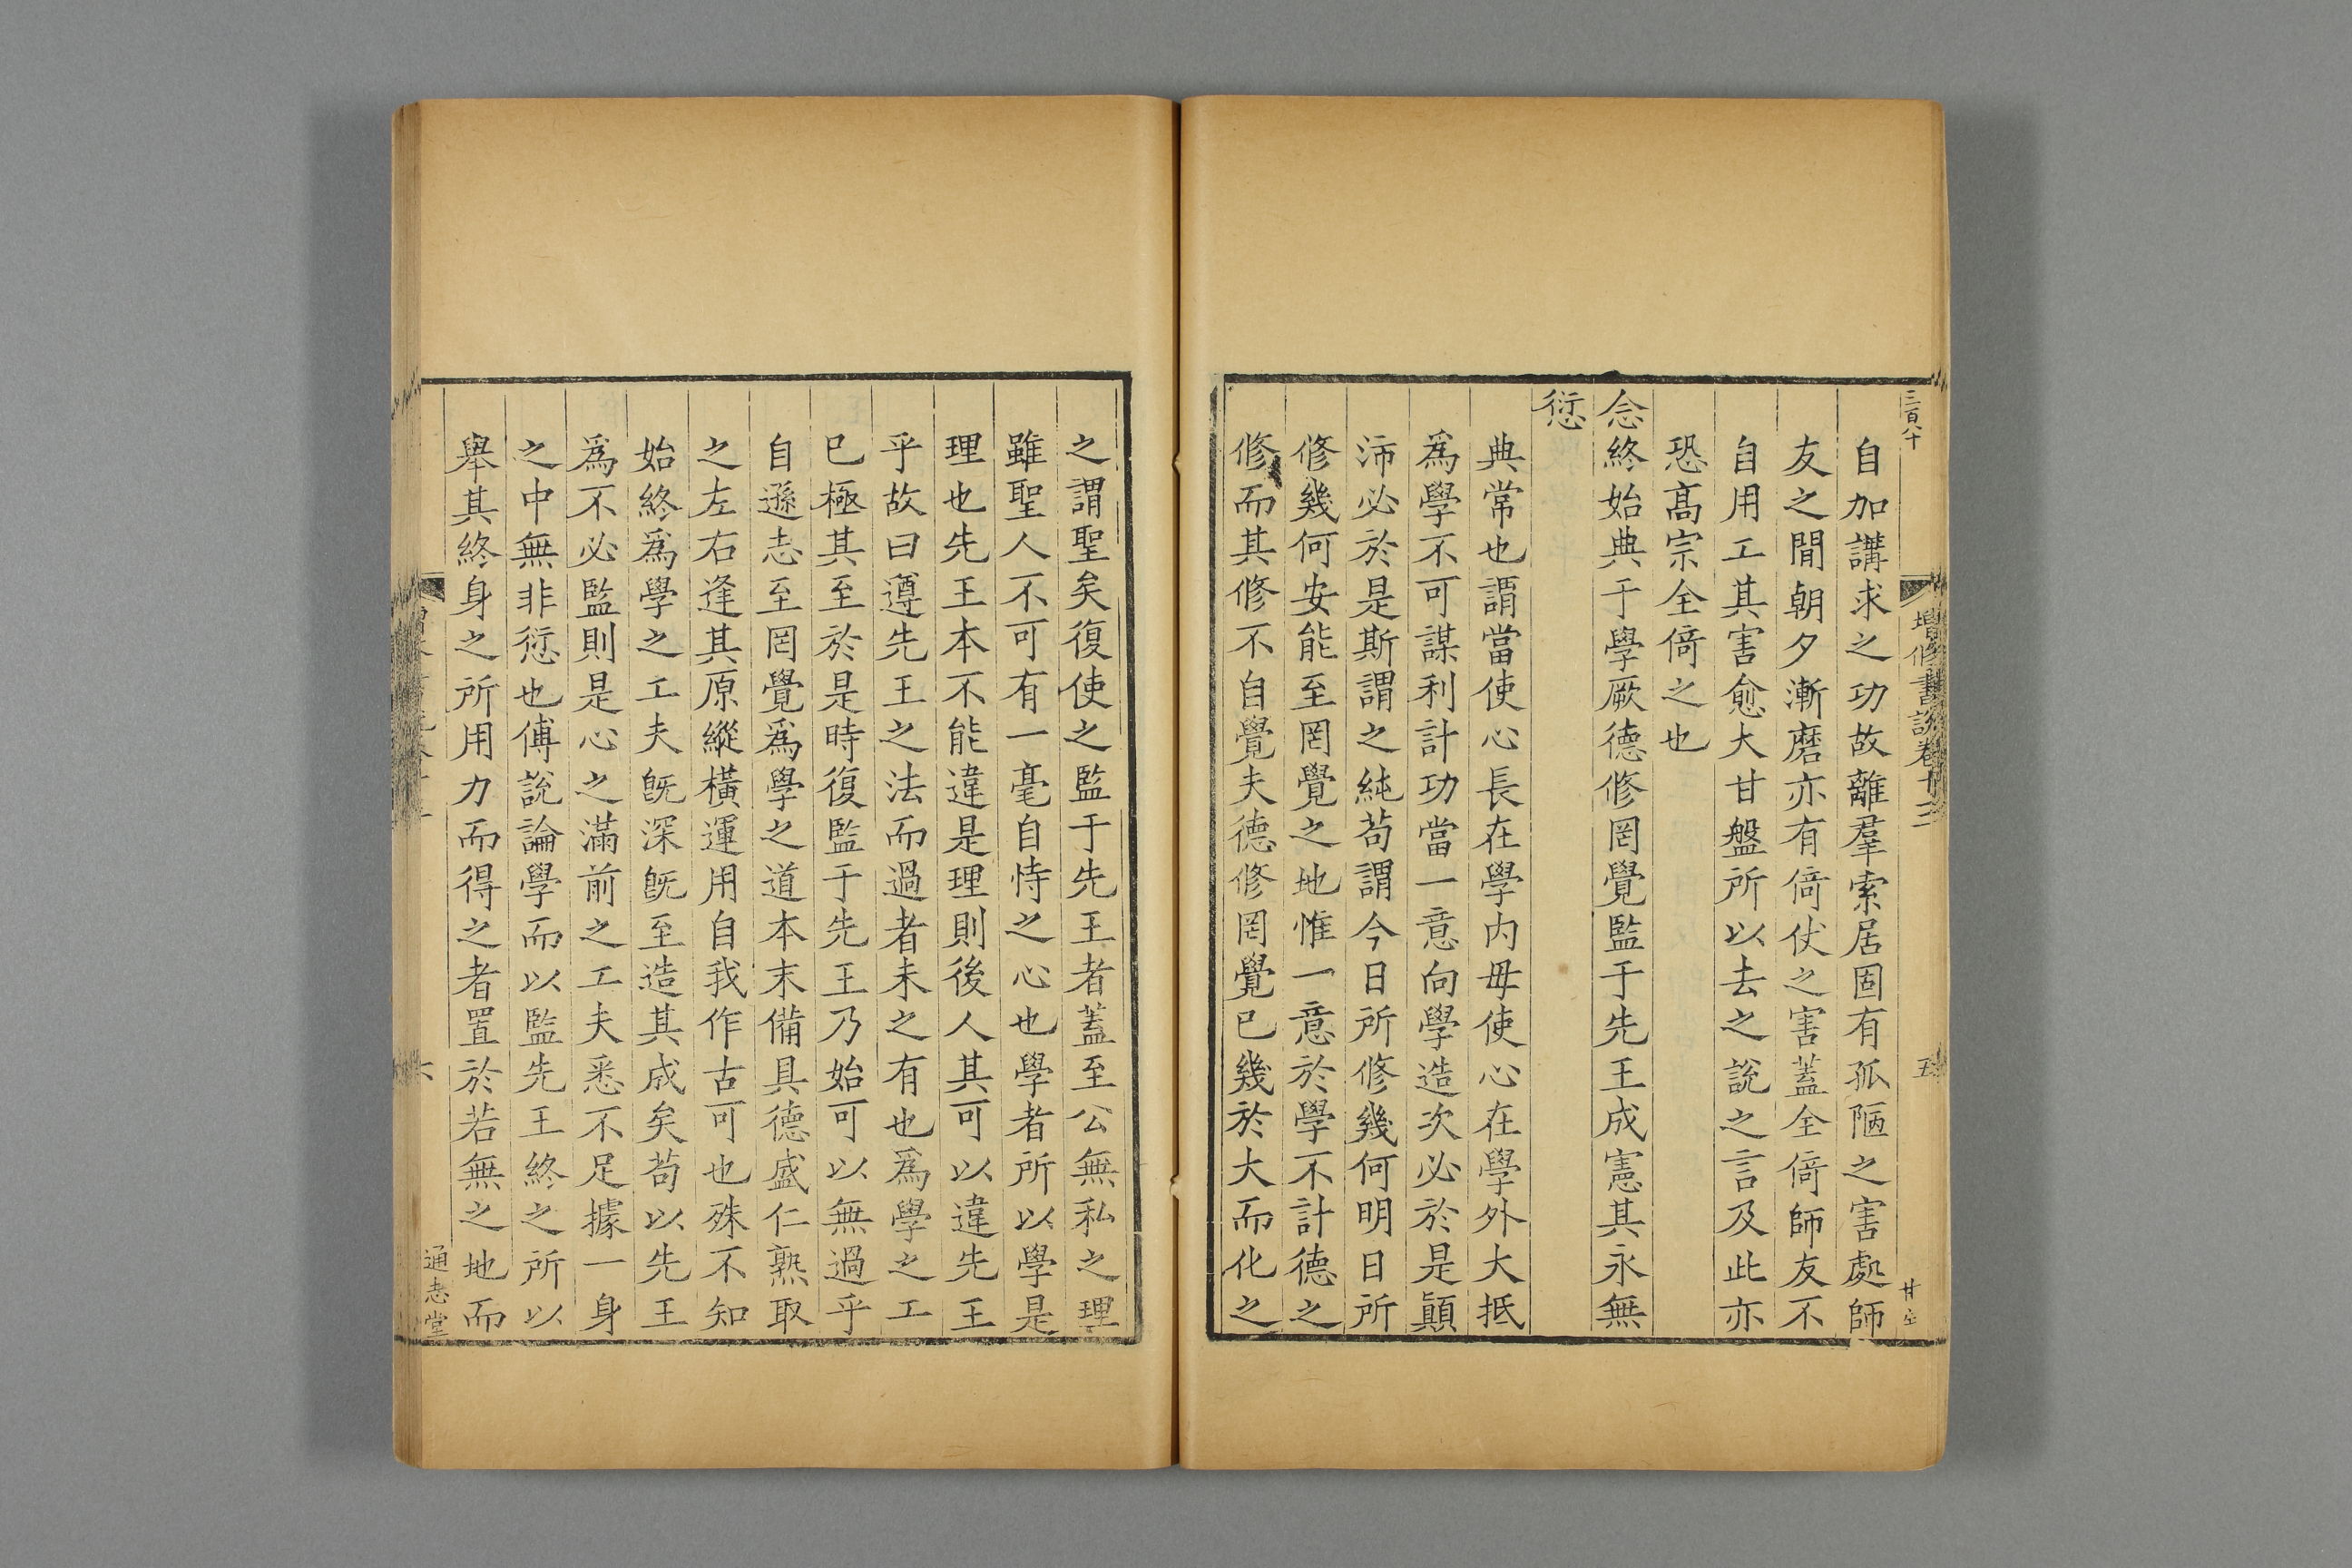 三百八十
増修書説卷十二
五
自加講求之功故離羣索居固有孤陋之害處師
友之閒朝夕漸磨亦有倚仗之害蓋全倚師友不
自用工其害愈大甘盤所以去之說之言及此亦
恐髙宗全倚之也
念終始典于學厥德修罔覺監于先王成憲其永無
愆
典常也謂當使心長在學内毋使心在學外大抵
爲學不可謀利計功當一意向學造次必於是顛
沛必於是斯謂之純茍謂今日所修幾何明日所
修幾何安能至罔覺之地惟一意於學不計德之
修而其修不自覺夫德修罔覺已幾於大而化之
之謂聖矣復使之監于先王者蓋至公無私之理
雖聖人不可有一毫自恃之心也學者所以學是
理也先王本不能違是理則後人其可以違先王
乎故曰遵先王之法而過者未之有也爲學之工
已極其至於是時復監于先王乃始可以無過乎
自遜志至罔覺爲學之道本末備具德盛仁熟取
之左右逢其原縱橫運用自我作古可也殊不知
始終爲學之工夫旣深旣至造其成矣茍以先王
爲不必監則是心之滿前之工夫悉不足據一身
之中無非愆也傅說論學而以監先王終之所以
舉其終身之所用力而得之者置於若無之地而
六
通志堂